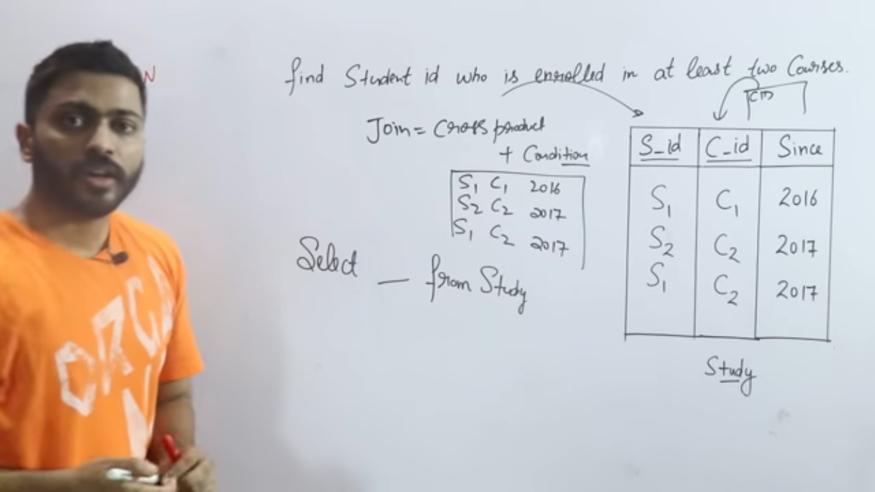 N
find Student id who is enrolled in at least two Courses.
Join = Cross product
+ Condition
S1 C1 2016
S2 C2 2017
S1 C2 2017
Select — from Study
S_id C_id Since
S1 C1 2016
S2 C2 2017
S1 C2 2017
Study